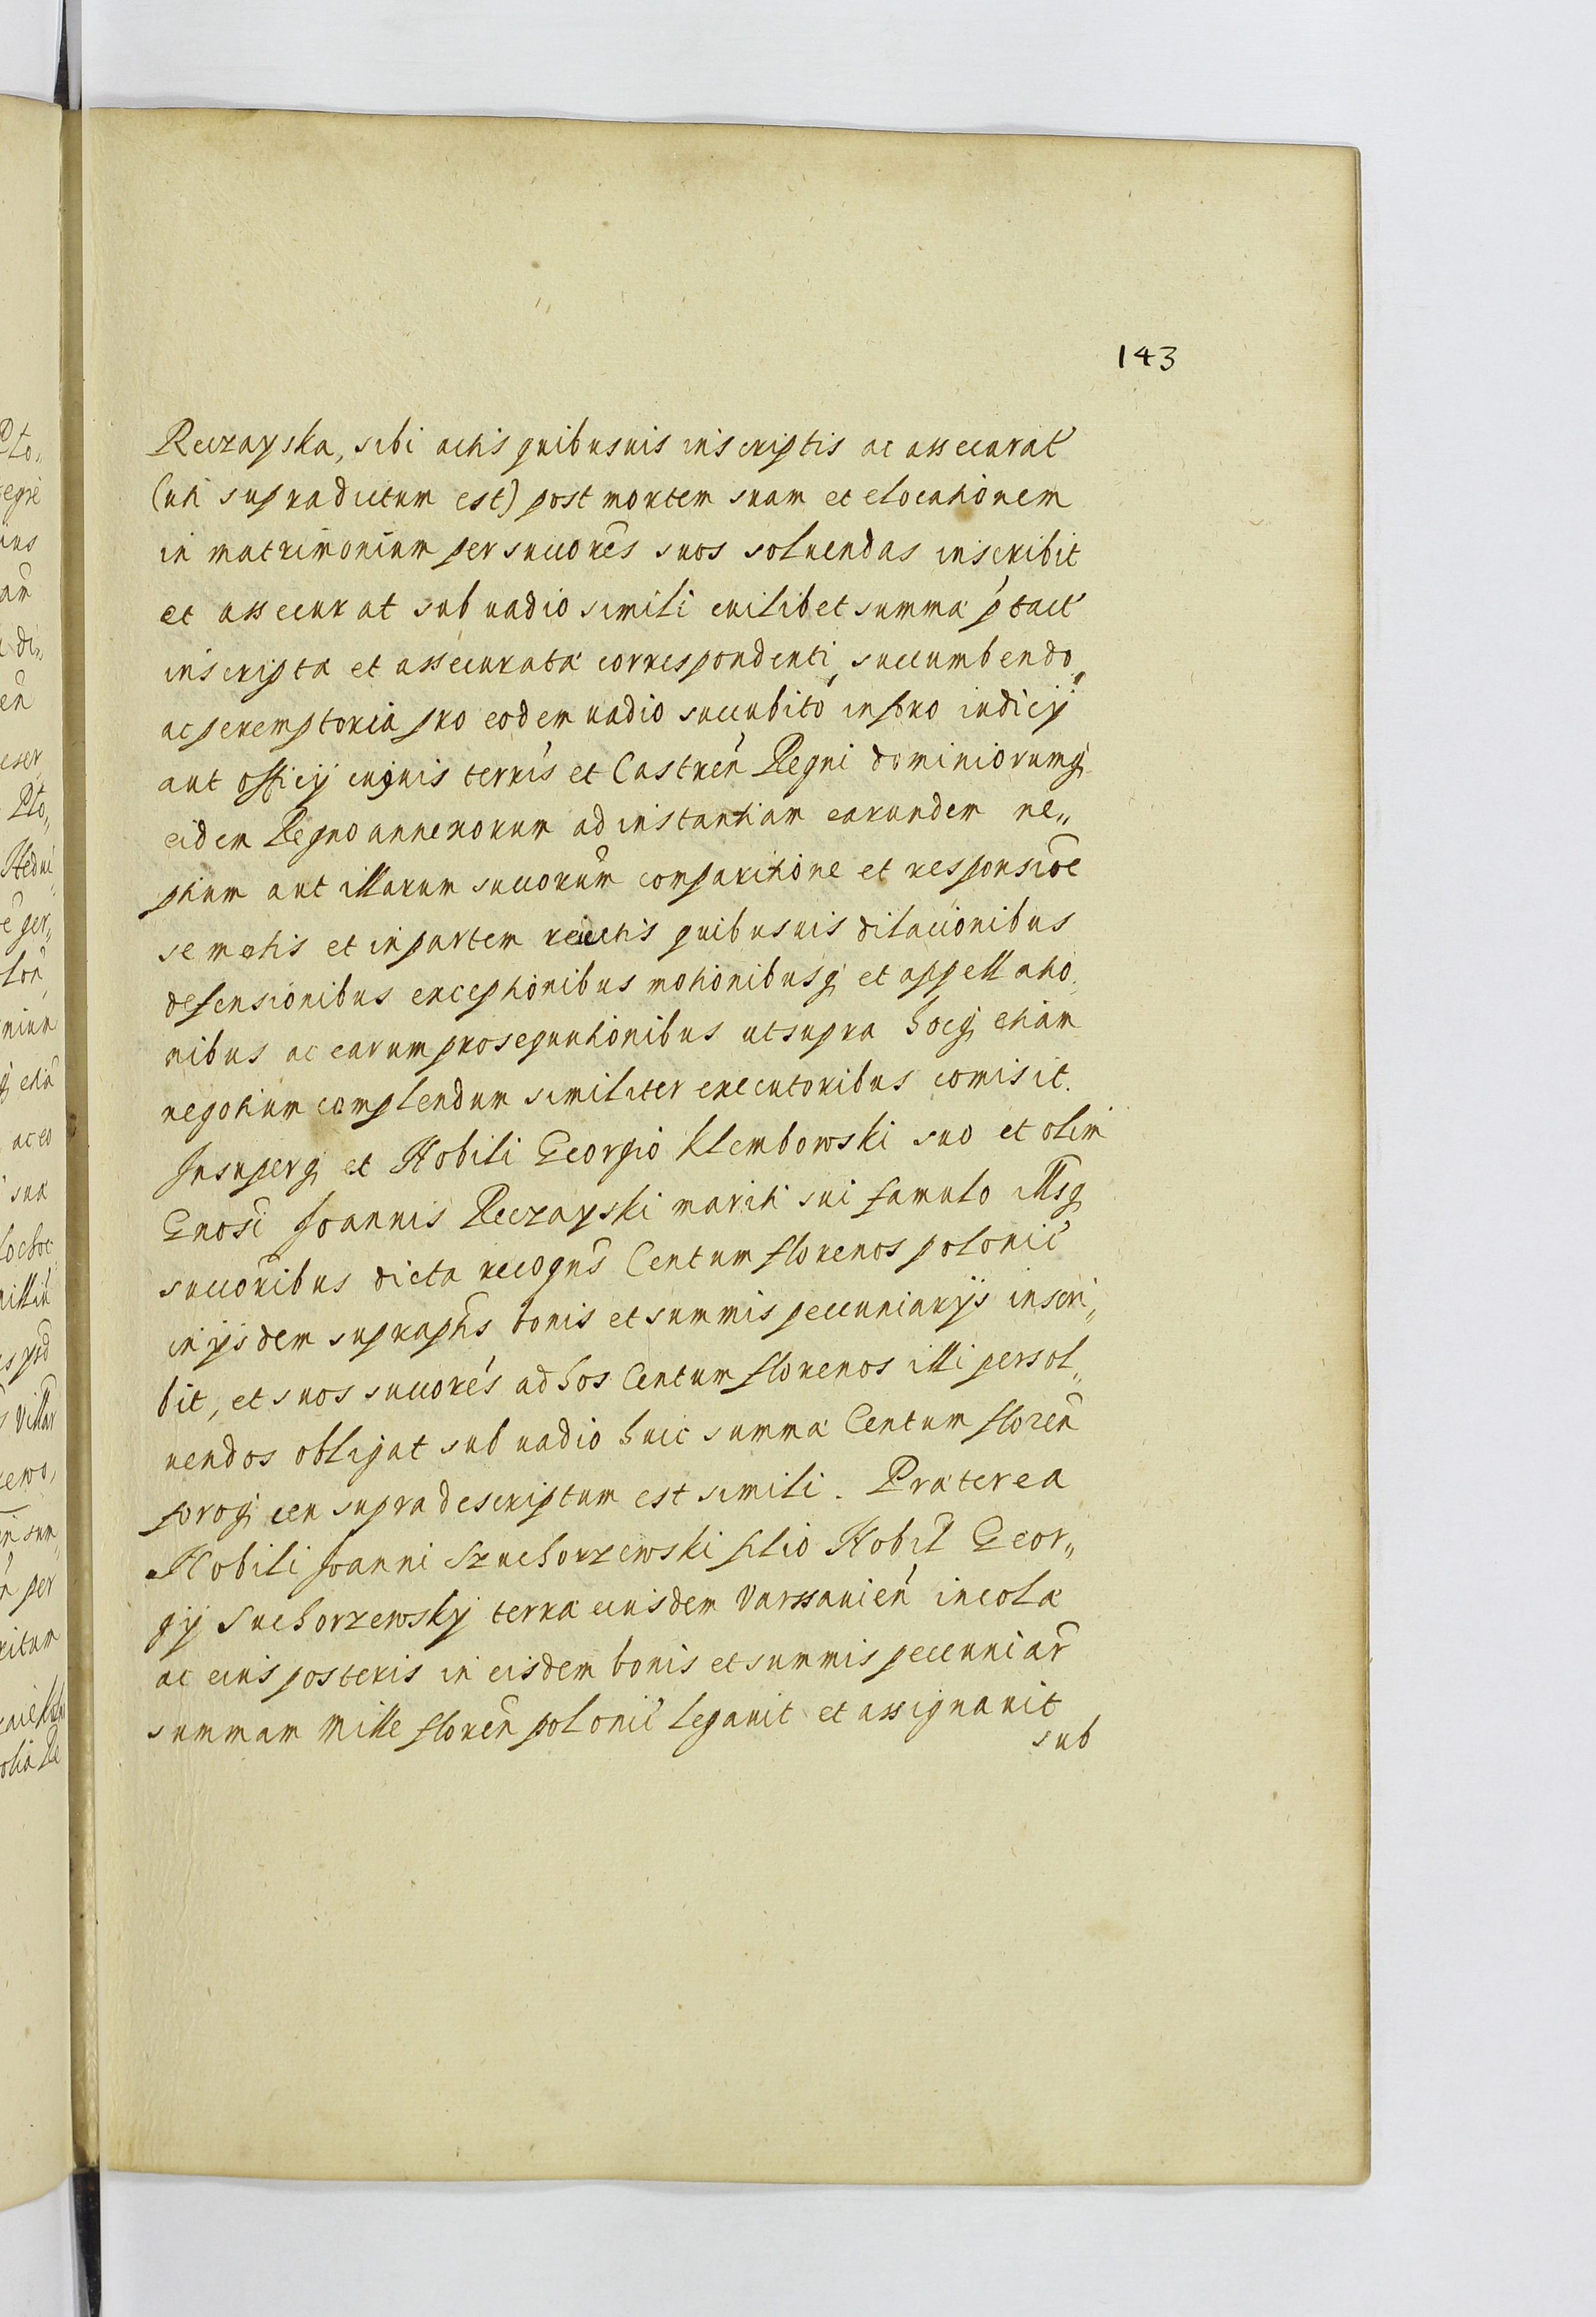 143
Reczayska, sibi actis quibusuis inscriptis ac assecurat̃
(uti supradictum est) post mortem suam et elocationem
in matrimonium per succores̃ suos soluendas inscribit
et assecurat sub uadio simili cuilibet summæ p̃tact̃
inscriptæ et assecuratæ correspondenti, succumbendo
ac peremptoriæ pro eodem uadio succubito in foro iudicij
aut officij cuiuis terris̃ et Castren̄ Regni dominiorumq̃
eidem Regno annexorum ad instantiam earundem ne„
ptium aut illarum succorum̃ comparitione et responsiõe
semotis et in partem reiectis quibusuis dilacionibus
defensionibus exceptionibus motionibusq̃ et appellatio„
nibus ac earum prosequutionibus ut supra hocq̃ etiam
negotium complendum similiter executoribus comisit.
Insuperq̃ et Nobili Georgio Klembowski suo et olim
Gnosi Joannis Reczayski mariti sui famulo illisq̃
succoribus̃ dicta recogns̃ Centum florenos polonic̃
in ijsdem suprapħs bonis et summis peccuniarijs inscri„
bit, et suos succores̃ ad hos Centum florenos illi persol„
uendos obligat sub uadio huic summæ Centum floren̄
prorq̃ ceu supra descriptum est simili. Præterea
Nobili Joanni Szuchorzewski filio Nobil̃ Geor„
gij Suchorzewskij terræ eiusdem Varssauien̄ incolæ
ac eius posteris in eisdem bonis et summis peccuniar̃
summam Mille floren̄ polonic̃ legauit et assignauit
sub